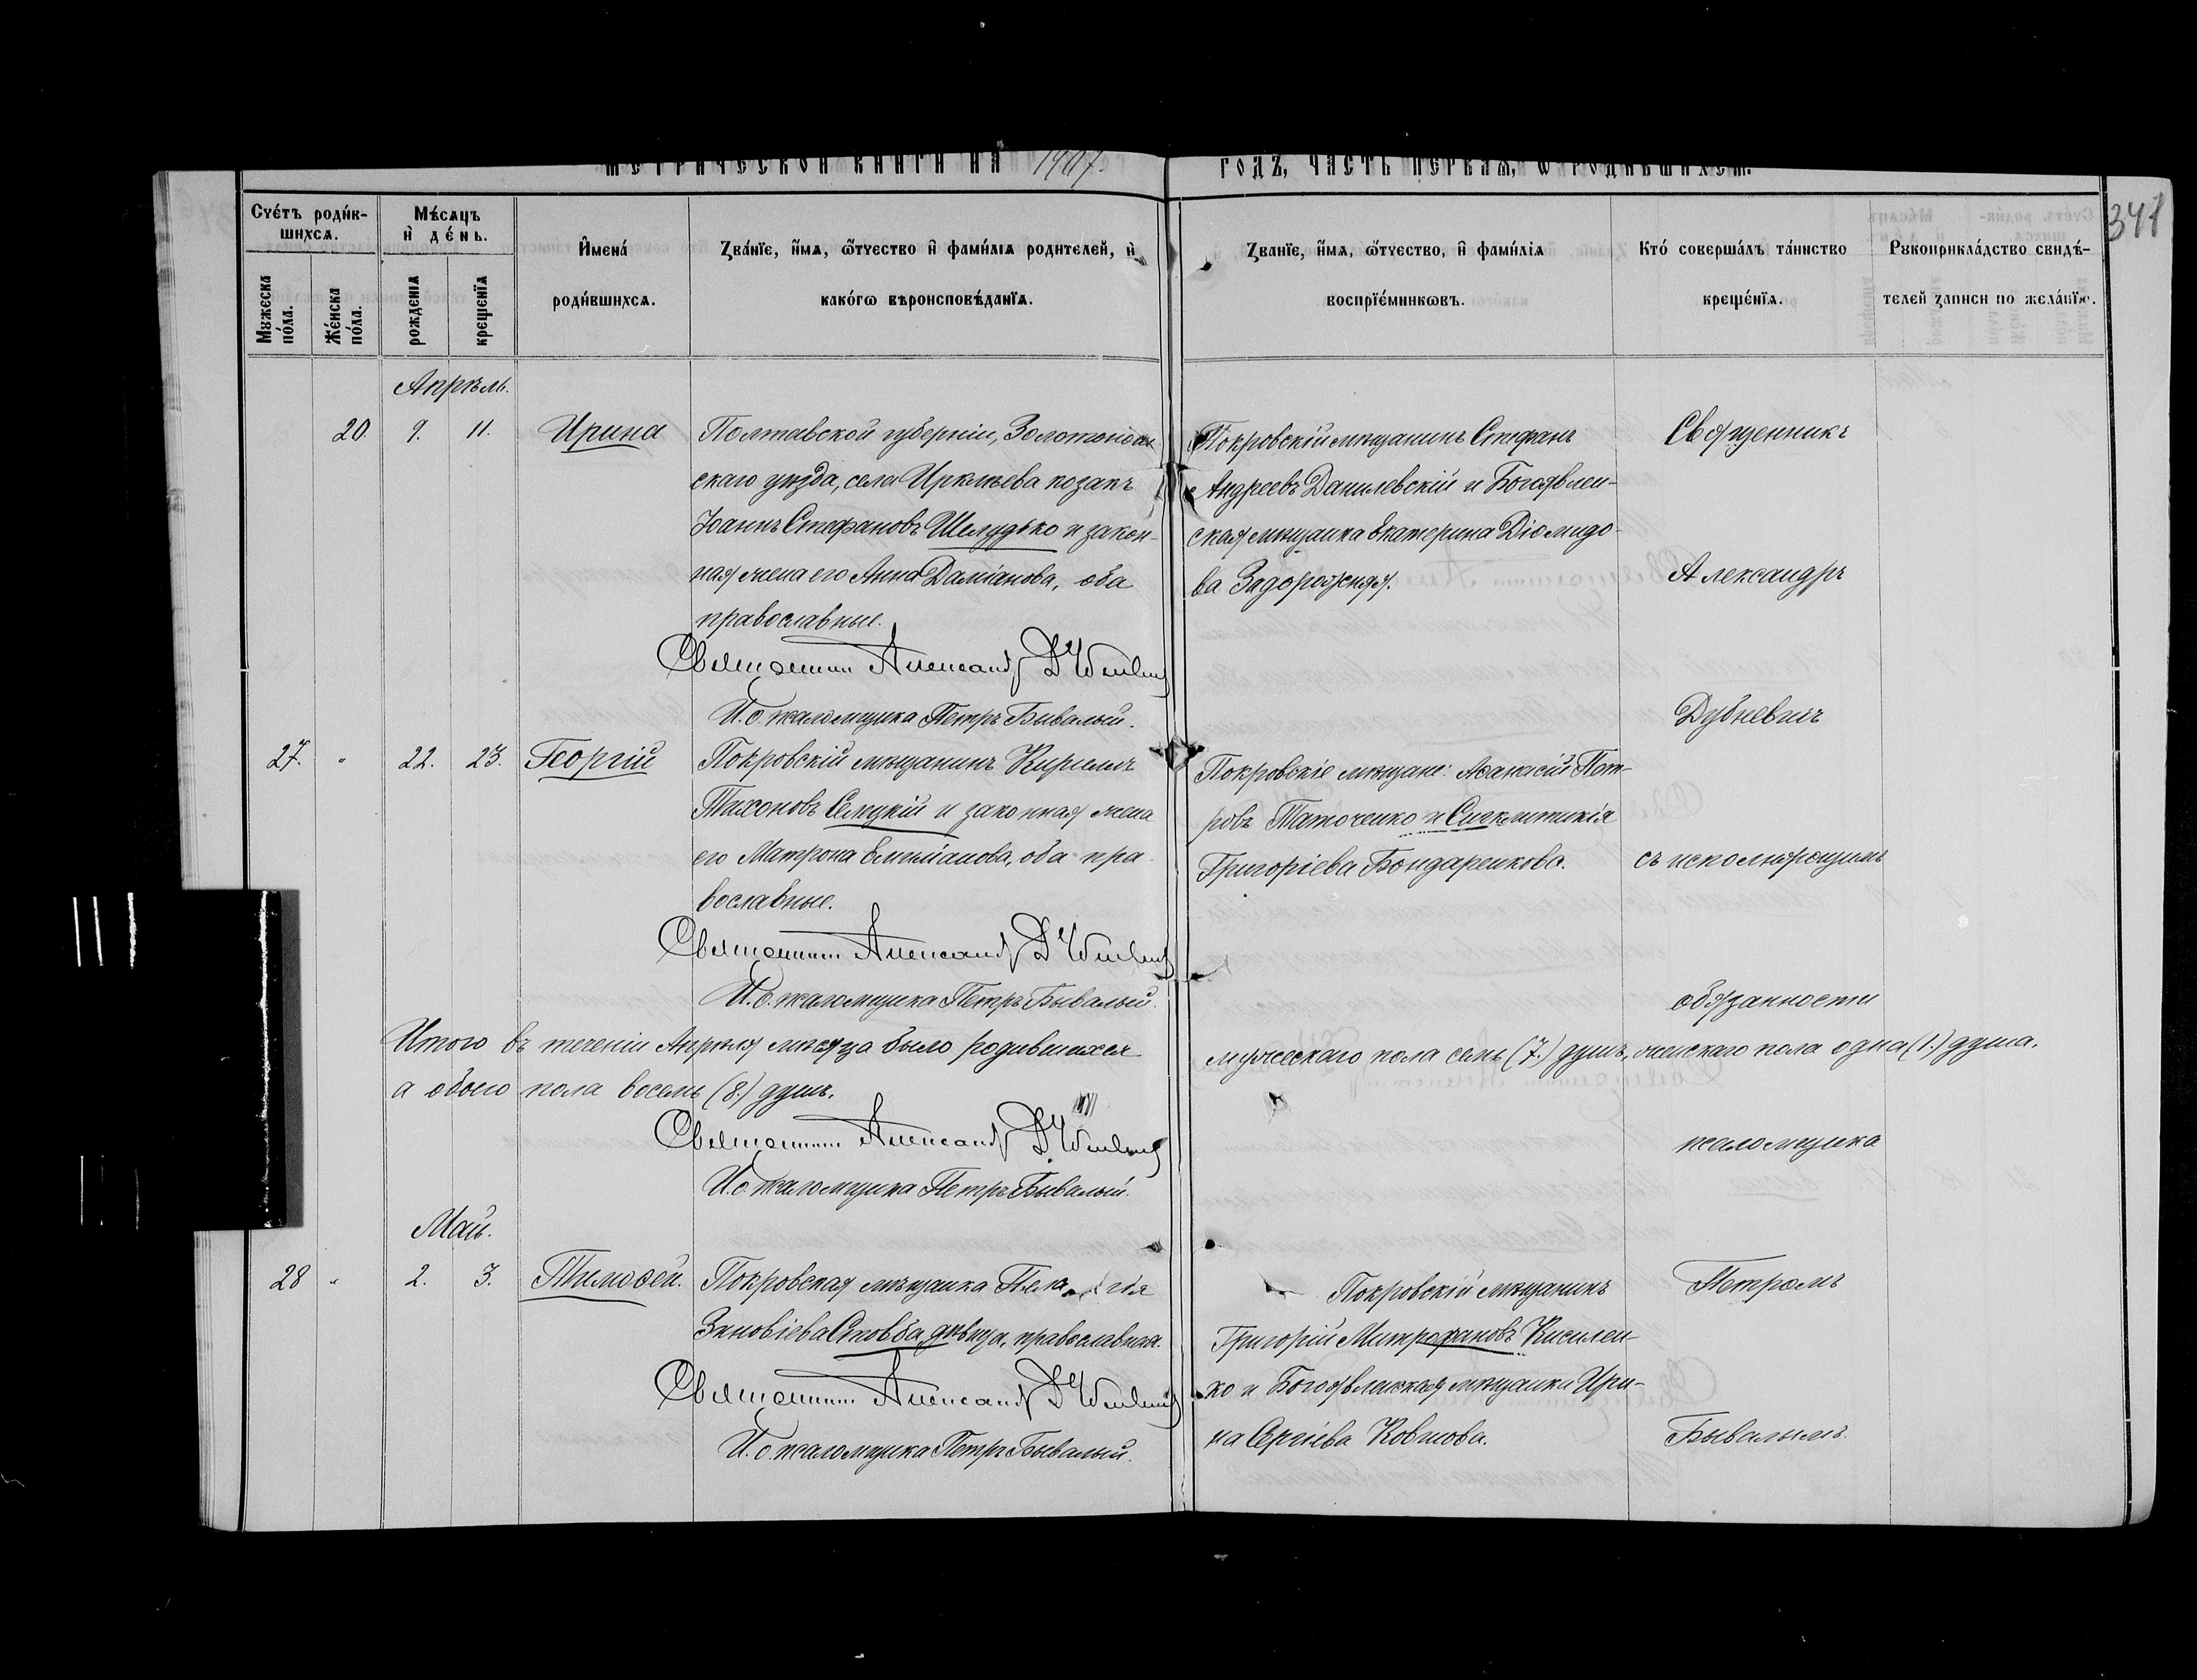 МЕТРИЧЕСКОЙ КНИГИ НА 1907. ГОДЪ, ЧАСТЬ ПЕРВАЯ, Ѡ РОДИВШИХСЯ.
341
Счéтъ роди́в-
шихсѧ.
Мꙋжеска
по́ла.
Же́нска
по́ла.
Мѣ́сѧцъ
и҆ де́нь.
рожденїѧ
крещенїѧ
И҆мена́
роди́вшихсѧ.
Зва́нїе, и҆́мѧ, ѻ҆́тчество и҆ фами́лїѧ родителей, и҆
како́гѡ вѣроисповѣ́данїѧ.
Званїе, и҆́мѧ, ѻ҆́тчество, и҆ фами́лїѧ
воспрїе́мникѡвъ.
Кто́ соверша́лъ та́инство
креще́нїѧ.
Рꙋкоприкла́дство свидѣ́-
телей записи по жела́нїю.
Апрѣль.
20. 9. 11. Ирина
Полтавской губерніи, Золотонош-
скаго уѣзда, села Иркліева козакъ
Іоаннъ Стефановъ Шелудько и закон-
ная жена его Анна Даміанова, оба
православные.
Священникъ Александръ Дубневичъ
И. о. псаломщика Петръ Бывалый.
Покровскій мѣщанинъ Стефанъ
Андреевъ Данилевскій и Богоявлен-
ская мѣщанка Екатерина Діомидо-
ва Задорожняя.
Священникъ
Александръ
Дубневичъ
27. " 22. 23. Георгій
Покровскій мѣщанинъ Кириллъ
Тихоновъ Селуцкій и законная жена
его Матрона Емиліанова, оба пра-
вославные.
Священникъ Александръ Дубневичъ
И. о. псаломщика Петръ Бывалый.
Покровскіе мѣщане: Аѳанасій Пет-
ровъ Таточенко и Синклитикія
Григоріева Бондаренкова.
съ исполняющимъ
обязанности
Итого въ теченіи Апрѣля мѣсяца было родившихся мужескаго пола семь (7.) душъ, женскаго пола одна (1.) душа,
а обоего пола восемь (8.) душъ.
Священникъ Александръ Дубневичъ
И. о. псаломщика Петръ Бывалый.
псаломщика
Май.
28 " 2. 3. Тимоѳей.
Покровская мѣщанка Пелагія
Зиновіева Стовба, дѣвица, православная.
Священникъ Александръ Дубневичъ
И. о. псаломщика Петръ Бывалый.
Покровскій мѣщанинъ
Григорій Митрофановъ Кисилен-
ко и Богоявленская мѣщанка Ири-
на Сергіева Ковшова.
Петромъ
Бывалымъ.